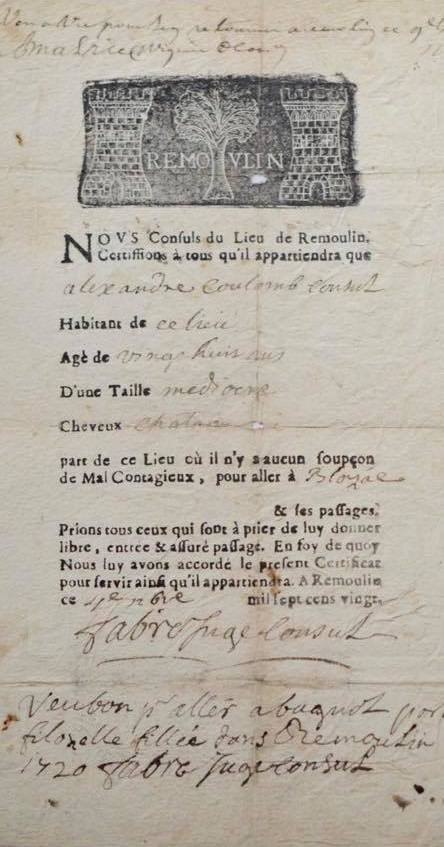 REMOVLIN
NOVS Consuls du Lieu de Remoulin,
Certiffions à tous qu'il appartiendra que
alexandre coulomb consul
Habitant de ce lieu
Agé de vingt huit ans
D'une Taille mediocre
Cheveux chatain
part de ce Lieu où il n'y a aucun soupçon
de Mal Contagieux, pour aller à
& ses passages.
Prions tous ceux qui sont à prier de luy donner
libre, entree & assuré passage. En foy de quoy
Nous luy avons accordé le present Certificat
pour servir ainsi qu'il appartiendra. A Remoulin
ce mil sept cens vingt,
fabre juge consul
Veu bon pr aller a
filozelle fillée dans Remoulin
1720 fabre juge consul